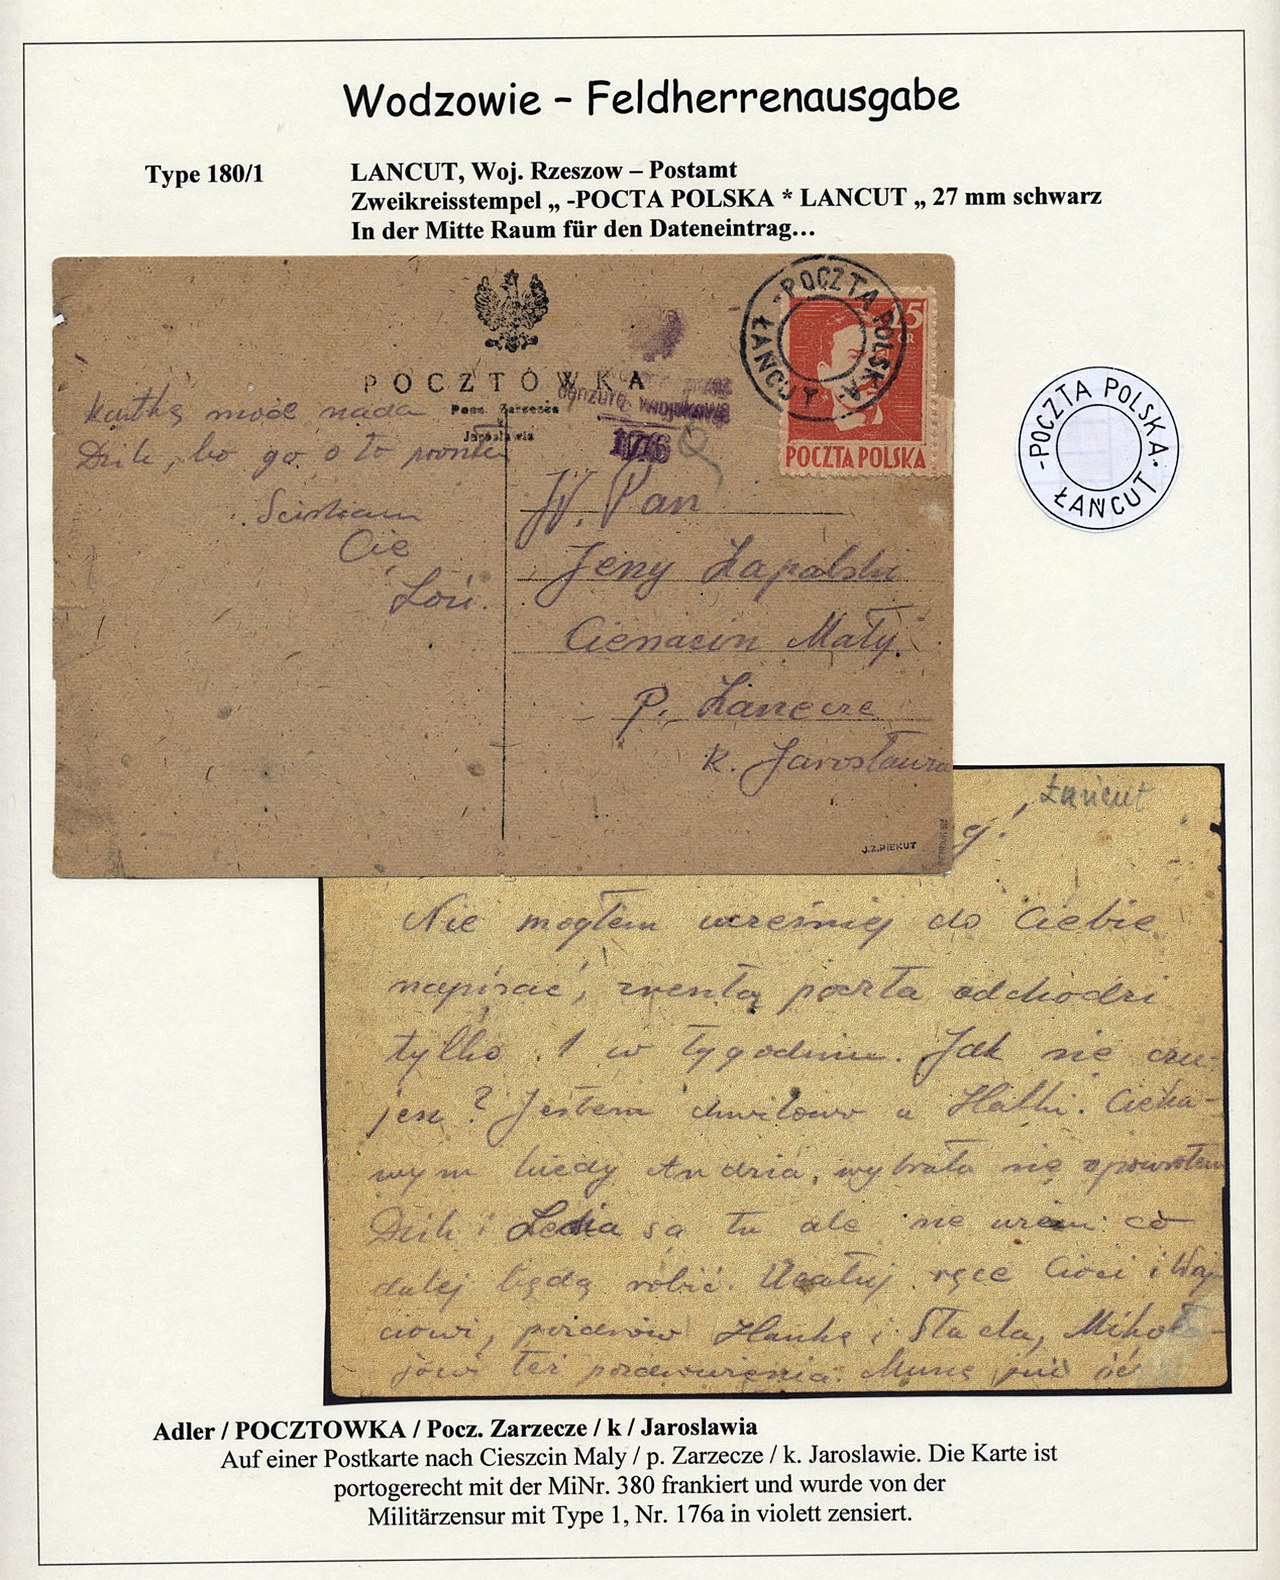 Wodzowie – Feldherrenausgabe
Type 180/1
LANCUT, Woj. Rzeszow – Postamt
Zweikreisstempel „ -POCTA POLSKA * LANCUT „ 27 mm schwarz
In der Mitte Raum für den Dateneintrag…
-POCZTA POLSKA-
ŁAŃCUT
15
GR
POCZTA POLSKA
POCZTÓWKA
Pocz. Zarzecze
k
Jarosławia
przez
cenzurę wojskową
176
kartkę może nada
Dzik, bo go o to
Ściskam
Cię
W. Pan
Jerzy Łapalski
Mały
p. Zarzecze
k. Jarosławia
J.Z.PIEKUT
-POCZTA POLSKA-
ŁAŃCUT
Łańcut
Nie mogłem wcześniej do Ciebie
napisać, zresztą poczta odchodzi
tylko 1 w tygodniu. Jak się czu-
jesz? Jestem chwilowo u Halki. Cieka-
wym kiedy Andzia, wybrała się z powrotem
Dzik i są tu ale nie wiem co
dalej będą robić. Ucałuj ręce Cioci i Woj-
ciowi, pozdrów Hankę i Stacha, Mikoła-
jowi też pozdrowienia. Muszę już iść
Adler / POCZTOWKA / Pocz. Zarzecze / k / Jaroslawia
Auf einer Postkarte nach Cieszcin Maly / p. Zarzecze / k. Jaroslawie. Die Karte ist
portogerecht mit der MiNr. 380 frankiert und wurde von der
Militärzensur mit Type 1, Nr. 176a in violett zensiert.